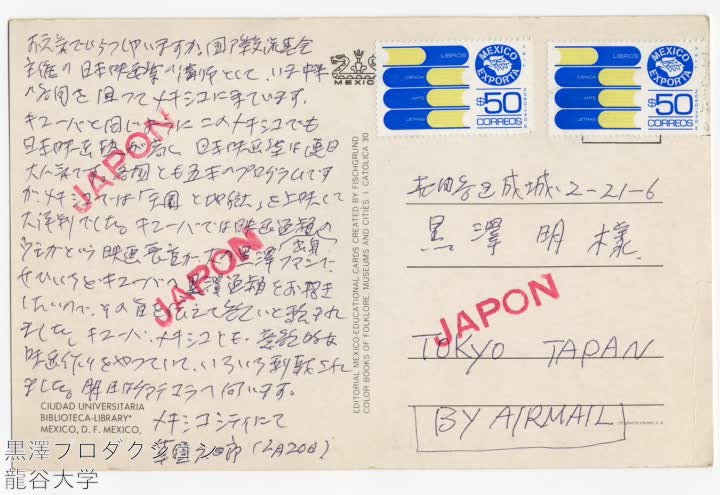 お元気でいらっしゃいますか。国際交流基金
主催の日本映画祭の講師として、いま中米
各国を回ってメキシコに来ています。
キューバと同じように、このメキシコでも
日本映画熱が高く、日本映画祭は連日
大入りです。各国とも五本のプログラムです
が、メキシコでは「天国と地獄」を上映して
大評判でした。キューバでは映画
という映画長官が大の黒澤ファンで、
ぜひいちどキューバへ黒澤監督をお招き
したいので、その旨を伝えて欲しいと頼まれ
ました。キューバ、メキシコとも、意欲的な
映画作りをやっていて、いろいろ刺戟され
ました。明日グァテマラへ向います。
メキシコシティにて
(2月20日)
CIUDAD UNIVERSITARIA
BIBLIOTECA-LIBRARY
MEXICO, D. F. MEXICO,
MEXICO
EDITORIAL MEXICO-EDUCATIONAL CARDS CREATED BY FISCHGRUND
COLOR BOOKS OF FOLKLORE, MUSEUMS AND CITIES | CATOLICA 30
LIBROS
CIENCIA
ARTE
LETRAS
MEXICO
EXPORTA
$50
CORREOS
LIBROS
CIENCIA
ARTE
LETRAS
MEXICO
EXPORTA
$50
CORREOS
世田谷区成城2-21-6
黒澤 明 様
TOKYO JAPAN
BY AIRMAIL
JAPON
JAPON
JAPON
黒澤プロダクション
龍谷大学